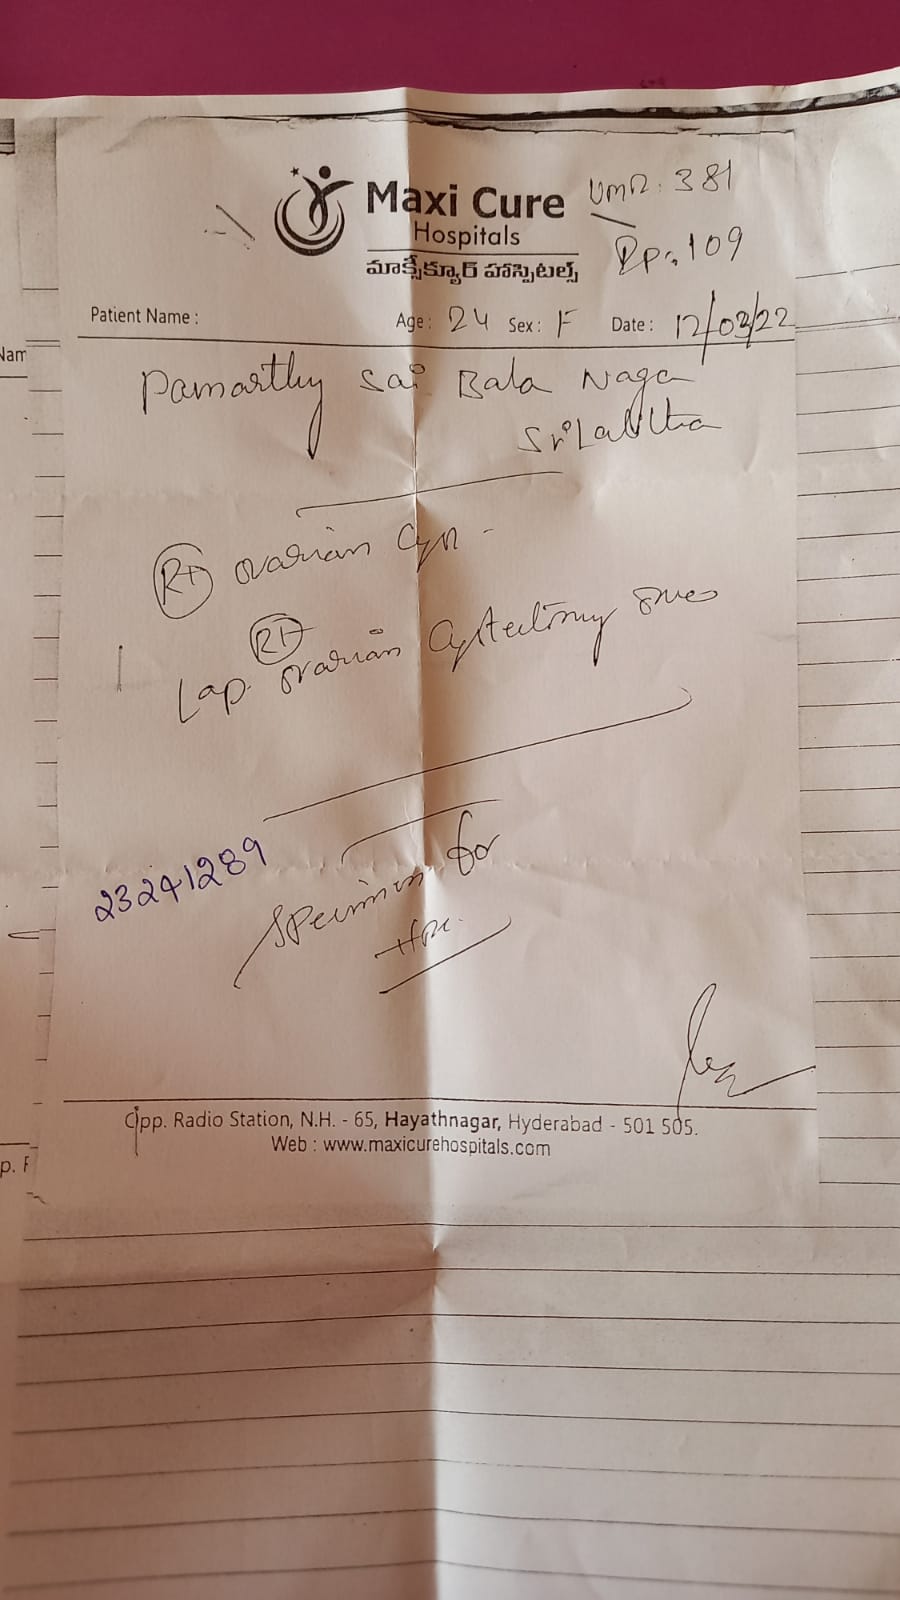 Maxi Cure
Hospitals
మాక్సీక్యూర్ హాస్పిటల్స్
UMR: 381
Rp: 109
Patient Name :
Age : 24 Sex : F Date : 12/02/22
Nam
Pamarthy Sai Bala Naga
SriLalitha
Rt ovarian Cyst -
Rt
Lap. ovarian Cystectomy done
23241289
Specimen for
HPE
Opp. Radio Station, N.H. - 65, Hayathnagar, Hyderabad - 501 505.
Web : www.maxicurehospitals.com
p. F